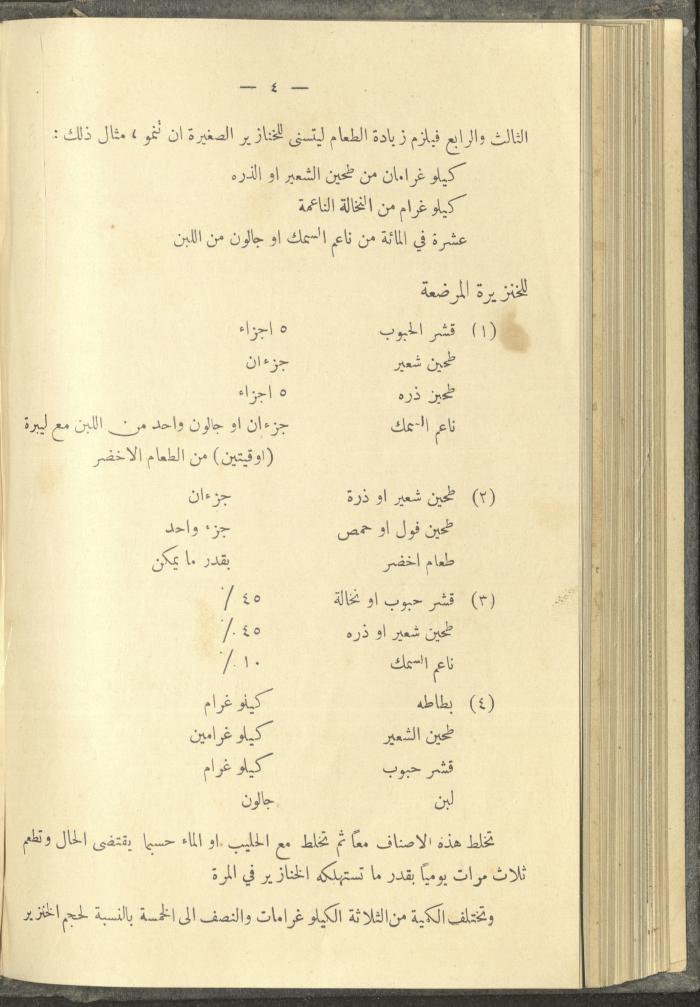 — ٤ —
الثالث والرابع فيلزم زيادة الطعام ليتسنى للخنازير الصغيرة ان تنمو ، مثال ذلك :
كيلو غرامان من طحين الشعير او الذره
كيلو غرام من النخالة الناعمة
عشرة في المائة من ناعم السمك او جالون من اللبن
للخنزيرة المرضعة
(١) قشر الحبوب ٥ اجزاء
طحين شعير جزءان
طحين ذره ٥ اجزاء
ناعم السمك جزءان او جالون واحد من اللبن مع ليبرة
(اوقيتين) من الطعام الاخضر
(٢) طحين شعير او ذرة جزءان
طحين فول او حمص جزء واحد
طعام اخضر بقدر ما يمكن
(٣) قشر حبوب او نخالة ٤٥ ٪
طحين شعير او ذره ٤٥ ٪
ناعم السمك ١٠ ٪
(٤) بطاطه كيلو غرام
طحين الشعير كيلو غرامين
قشر حبوب كيلو غرام
لبن جالون
تخلط هذه الاصناف معاً ثم تخلط مع الحليب او الماء حسبما يقتضى الحال وتطعم
ثلاث مرات يومياً بقدر ما تستهلكه الخنازير في المرة
وتختلف الكمية من الثلاثة الكيلو غرامات والنصف الى الخمسة بالنسبة لحجم الخنزير